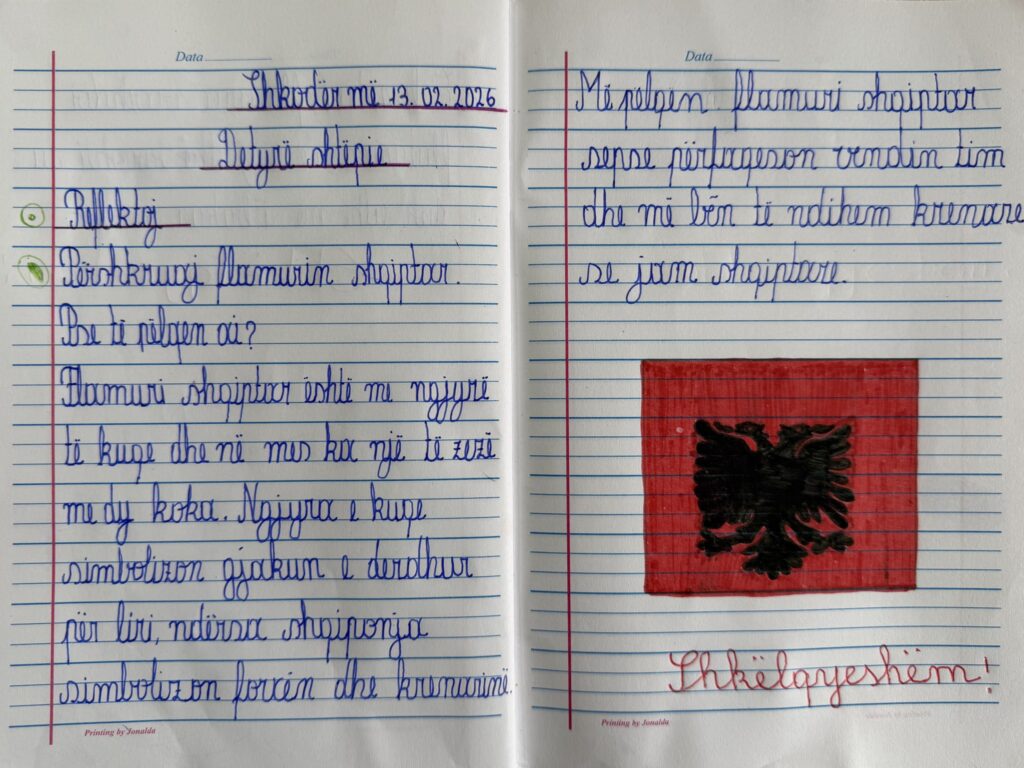 Data
Shkodër më 13.02.2026
Detyrë shtëpie
Reflektoj
Përshkruaj flamurin shqiptar.
Pse të pëlqen ai?
Flamuri shqiptar është me ngjyrë
të kuqe dhe në mes ka një të zezë
me dy koka. Ngjyra e kuqe
simbolizon gjakun e derdhur
për liri, ndërsa shqiponja
simbolizon forcën dhe krenarinë.
Printing by Jonalda
Data
Më pelqen flamuri shqiptar
sepse përfaqeson vendin tim
dhe më bën të ndihem krenare
se jam shqiptare.
Shkëlqyeshëm!
Printing by Jonalda